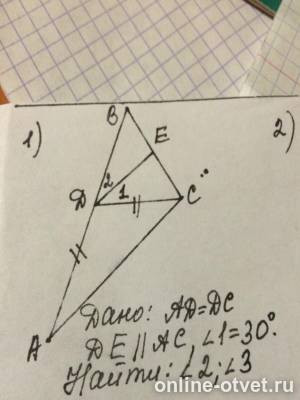 1)
2)
B
E
2
1
D
C
A
Дано: AD=DC
DE||AC, ∠1=30°.
Найти: ∠2;∠3
online-otvet.ru